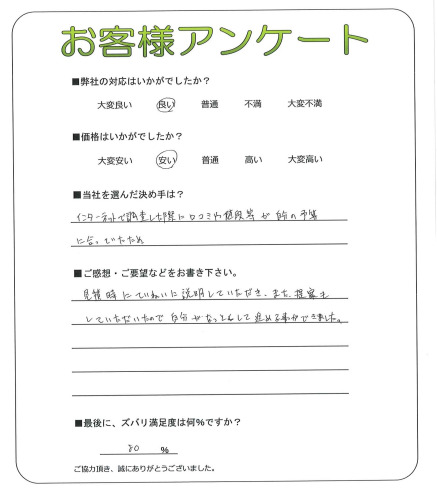 お客様アンケート
■弊社の対応はいかがでしたか？
大変良い 良い 普通 不満 大変不満
■価格はいかがでしたか？
大変安い 安い 普通 高い 大変高い
■当社を選んだ決め手は？
インターネットで調査した際に口コミや値段等が自分の予算
に合っていたため
■ご感想・ご要望などをお書き下さい。
見積時にていねいに説明していただき、また、提案も
していただいたので自分がなっとくして進める事ができました。
■最後に、ズバリ満足度は何%ですか？
80 %
ご協力頂き、誠にありがとうございました。